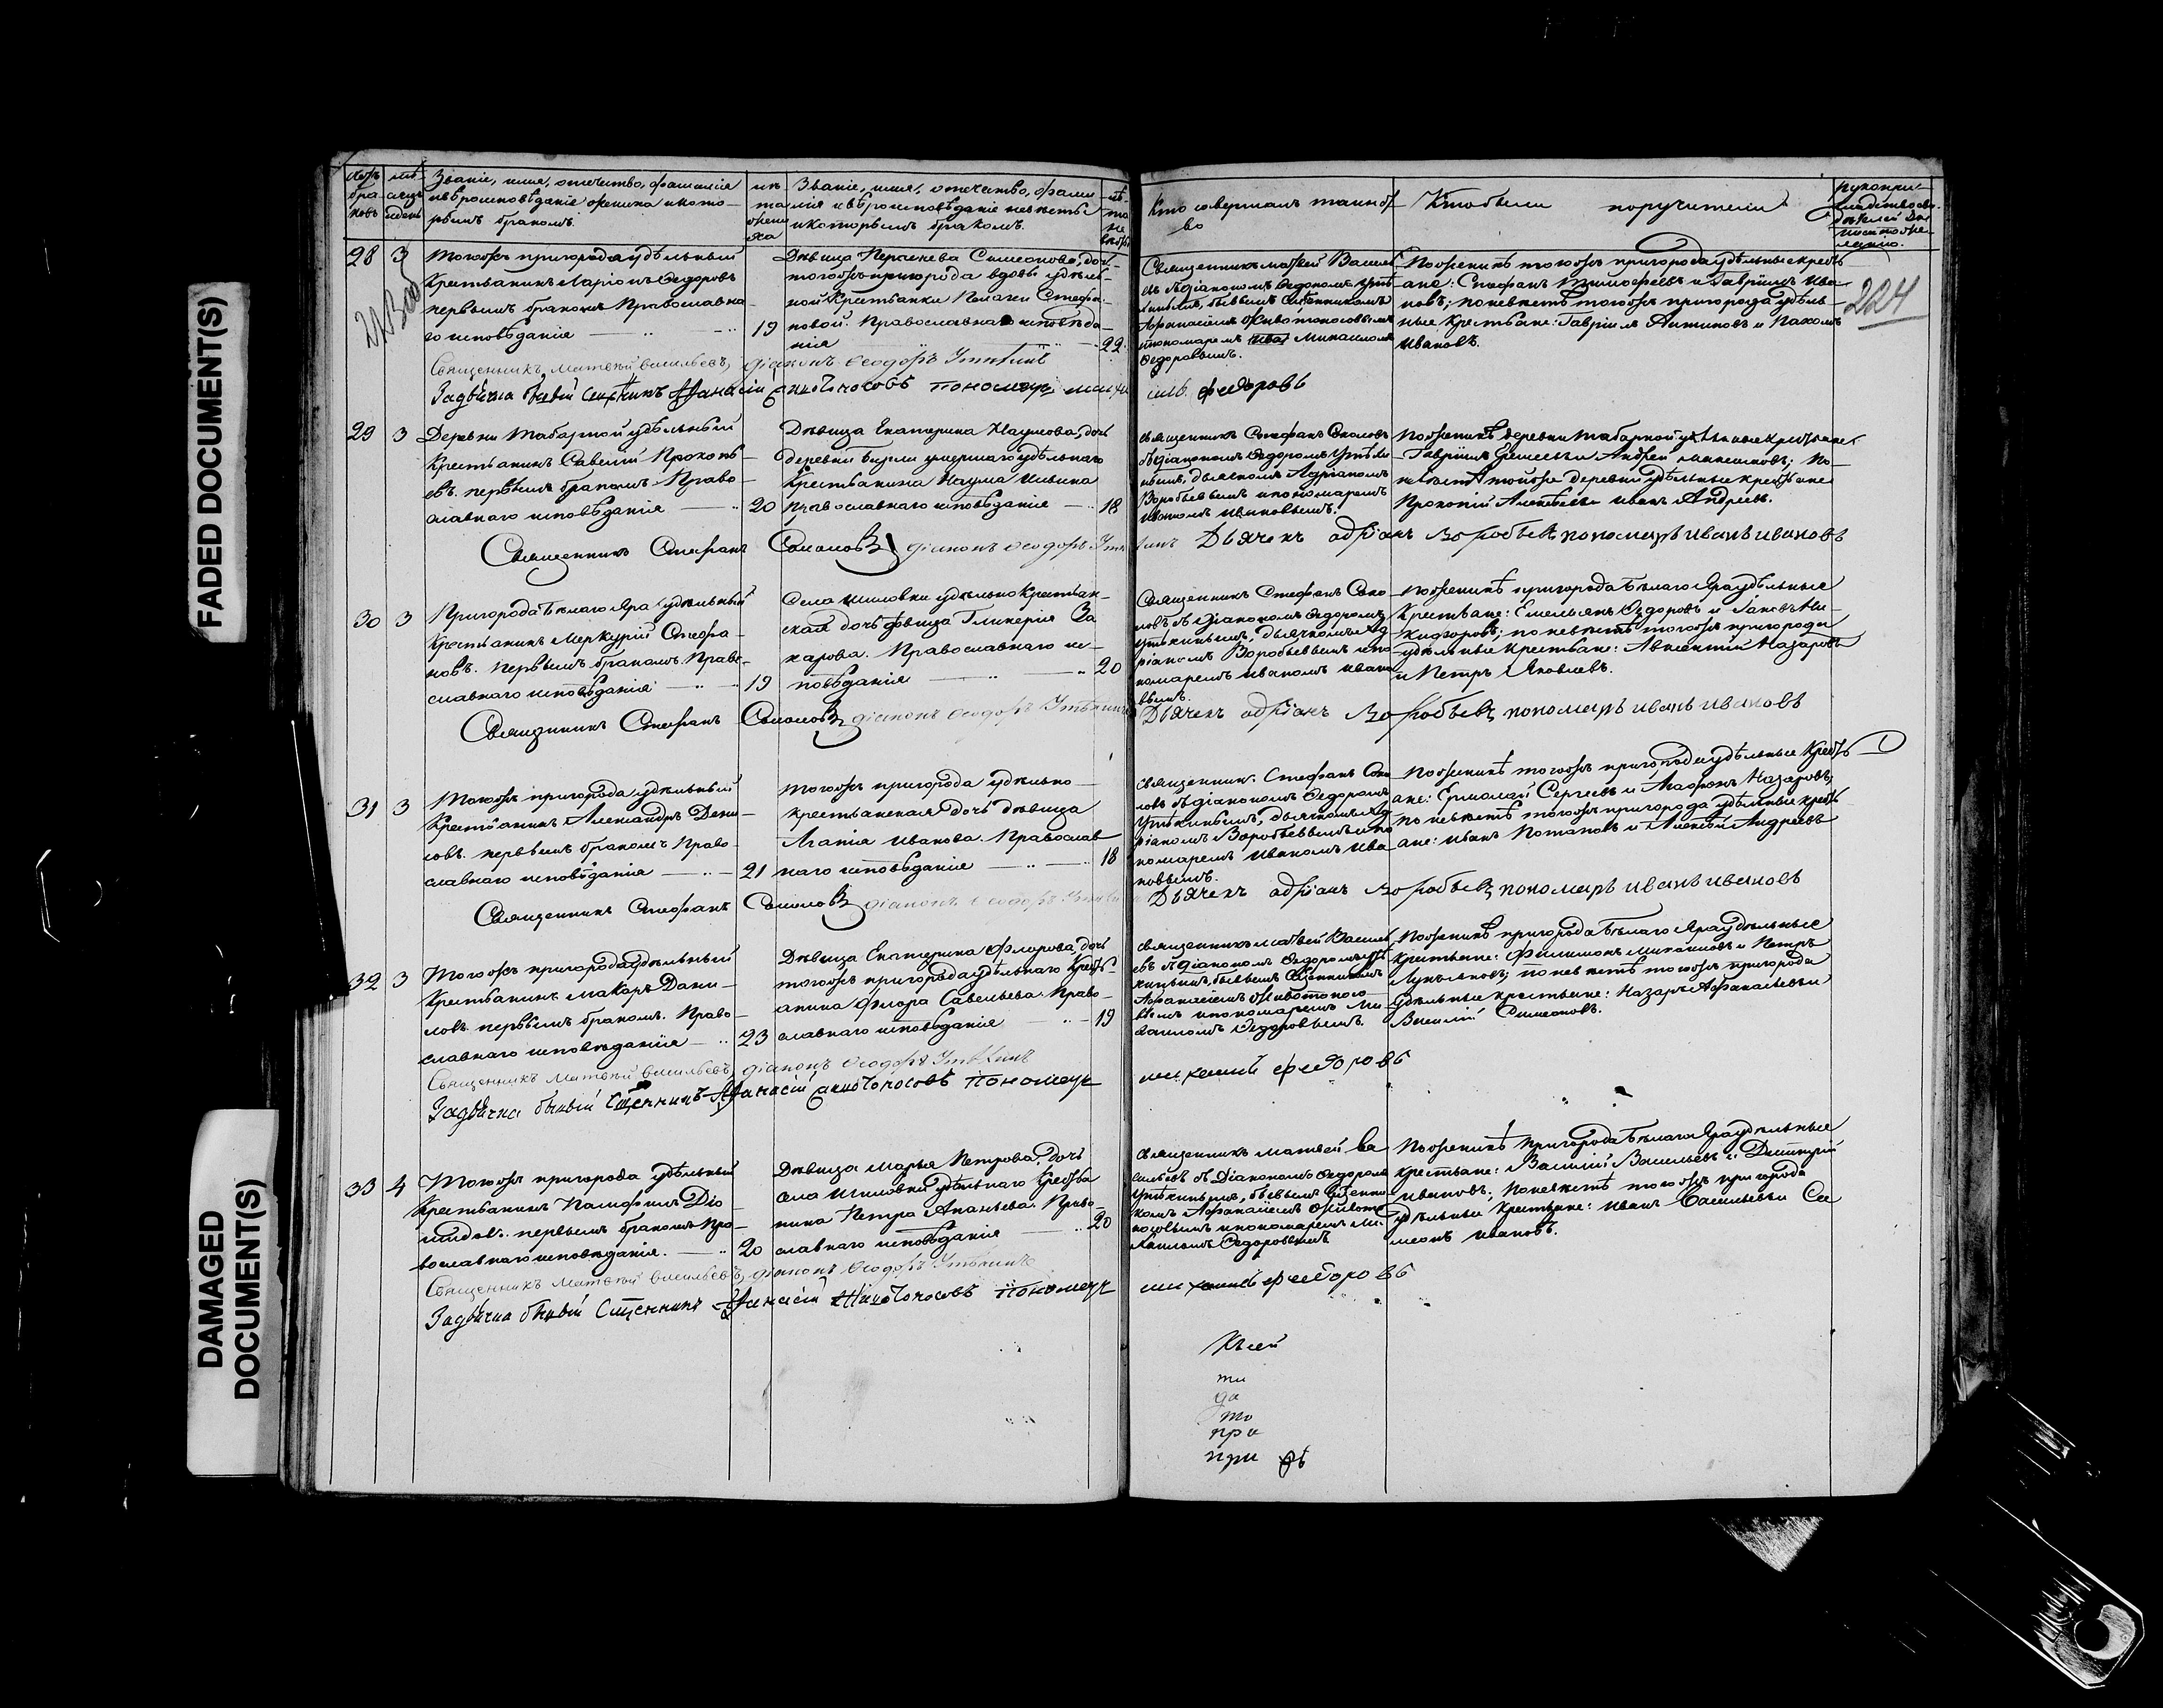 FADED DOCUMENT(S)
DAMAGED
DOCUMENT(S)
Званіе, имя, отчество, фамилія
и вѣроисповѣданіе жениха и кото-
рымъ бракомъ.
Званіе, имя, отчество, фами
лія и вѣроисповѣданіе невѣсты
и которымъ бракомъ.
Кто совершалъ таинст
во
Кто были поручители
224
28 3
Тогожъ пригорода удѣльный
Крестьянинъ Ларіонъ Ѳедоровъ
первымъ бракомъ Православна
го исповѣданія 19
Дѣвица Сѵмеонова, дочь
тогожъ пригорода вдовы удѣль
ной Крестьянки Пелагеи Стефа-
новой. Православнаго исповѣда
нія 22
Священникъ Матвей Василь
евъ съ діакономъ Ѳедоромъ Утѣ
бывшимъ Священникомъ
Афанасіемъ Животоносовымъ
пономаремъ Михаиломъ
Ѳедоровымъ.
По женихѣ тогожъ пригорода удѣльные крестъ
яне: Стефанъ Тимофеевъ и Гавріилъ Ива
новъ; по невѣстѣ тогожъ пригорода удѣль-
ные Крестьяне: Гавріилъ Антиповъ и Пахомъ
Ивановъ.
Священникъ Матвѣй Васильевъ, діаконъ Ѳеодоръ Утѣкинъ
Задьячка бывый Сщенникъ Афанасій Живоtоносовъ пономарь Михаилъ Федоровъ
29 3
Деревни Табарной удѣльный
Крестьянинъ Савелій Прокопь
евъ. первымъ бракомъ. Право-
славнаго исповѣданія 20
Дѣвица Екатерина Наумова, дочь
деревни умершаго удѣльнаго
Крестьянина Наума Ильина
Православнаго исповѣданія 18
Священникъ Стефанъ Соколовъ
съ діакономъ Ѳедоромъ Утѣки
нымъ, дьячкомъ Адріаномъ
Воробьевымъ и пономаремъ
Иваномъ Ивановымъ.
По женихѣ деревни Табарной удѣльные крестьяне
Гавріилъ и Андрей; по
невѣстѣ тойже деревни удѣльные Крестьяне
Прокопій Алексѣевъ и Иванъ Андреевъ.
Священникъ Стефанъ Соколовъ діаконъ Ѳеодоръ Утѣкинъ Дьячекъ Адріанъ Воробьевъ пономарь Иванъ Ивановъ
30 3
Пригорода Бѣлаго Яра удѣльный
Крестьянинъ Меркурій Стефа-
новъ. Первымъ бракомъ. Право-
славнаго исповѣданія 19
Села Шиловки удѣльно Крестьян-
ская дочь дѣвица Гликерія За
харова. Православнаго ис-
повѣданія 20
Священникъ Стефанъ Соко
ловъ съ діакономъ Ѳедоромъ
Утѣкинымъ, дьячкомъ Ад
ріаномъ Воробьевымъ и по
номаремъ Иваномъ Ивано
вымъ.
По женихѣ пригорода Бѣлаго Яра удѣльные
Крестьяне: Емельянъ Ѳедоровъ и Яковъ Ни-
кифоровъ; по невѣстѣ тогожъ пригорода
удѣльные Крестьяне: Авксентій Назаровъ
и Петръ Яковлевъ.
Священникъ Стефанъ Соколовъ діаконъ Ѳеодоръ Утѣкинъ Дьячекъ Адріанъ Воробьевъ пономарь Иванъ Ивановъ
31 3
Тогожъ пригорода удѣльный
Крестьянинъ Александръ Дани-
ловъ. первымъ бракомъ Право-
славнаго исповѣданія 21
Тогожъ пригорода удѣльно
крестьянская дочь дѣвица
Агапія Иванова. Православ
наго исповѣданія 18
Священникъ Стефанъ Соко
ловъ съ діакономъ Ѳедоромъ
Утѣкинымъ, дьячкомъ Ад
ріаномъ Воробьевымъ и по
номаремъ Иваномъ Ива
новымъ.
По женихѣ тогожъ пригорода удѣльные Кресть
яне: Ермолай Сергеевъ и Агафонъ Назаровъ;
по невѣстѣ тогожъ пригорода удѣльные кресть
яне: Иванъ Потаповъ и Алексѣй Андреевъ
Священникъ Стефанъ Соколовъ діаконъ Ѳеодоръ Утѣкинъ Дьячекъ Адріанъ Воробьевъ пономарь Иванъ Ивановъ
32 3
Тогожъ пригорода удѣльный
Крестьянинъ Макаръ Дани-
ловъ. первымъ бракомъ. Право-
славнаго исповѣданія 23
Дѣвица Екатерина Флорова, дочь
тогожъ пригорода удѣльнаго Кресть-
янина Флора Савельева. Право-
славнаго исповѣданія 19
Священникъ Матвей Василь
евъ съ діакономъ Ѳедоромъ Утѣ
кинымъ, бывшимъ Сщенникомъ
Афанасіемъ Животоносо-
вымъ и пономаремъ Ми-
хаиломъ Ѳедоровымъ.
По женихѣ пригорода Бѣлаго Яра удѣльные
Крестьяне: Филимонъ Михайловъ и Петръ
Лукьяновъ; по невѣстѣ тогожъ пригорода
Удѣльные крестьяне: Назаръ Афанасьевъ и
Василій Симеоновъ.
Священникъ Матвѣй Васильевъ, діаконъ Ѳеодоръ Утѣкинъ
Задьячка бывый Сщенникъ Афанасій Живоtоносовъ пономарь Михаилъ Федоровъ
33 4
Тогожъ пригорода удѣльный
Крестьянинъ Памфилъ Діо
мидовъ. первымъ бракомъ Пра-
вославнаго исповѣданія. 20
Дѣвица Марья Петрова, дочь
села Шиловки удѣльнаго Кресть
нина Петра Ананьева. Право-
славнаго исповѣданія 20
Священникъ Матвей Ва
сильевъ съ Діакономъ Ѳедоромъ
Утѣкинымъ, бывшимъ Сщенни
комъ Афанасіемъ Живото
носовымъ и пономаремъ Ми-
хаиломъ Ѳедоровымъ
По женихѣ Пригорода Бѣлаго Яра удѣльные
Крестьяне: Василій Васильевъ и Димитрій
Ивановъ; По невѣстѣ тогожъ пригорода
удѣльные Крестьяне: Иванъ Васильевъ и Си
меонъ Ивановъ.
Священникъ Матвѣй Васильевъ, діаконъ Ѳеодоръ Утѣкинъ
Задьячка бывый Сщенникъ Афанасій Живоtоносовъ пономарь Михаилъ Федоровъ
Къ сей
ти
да
то
при